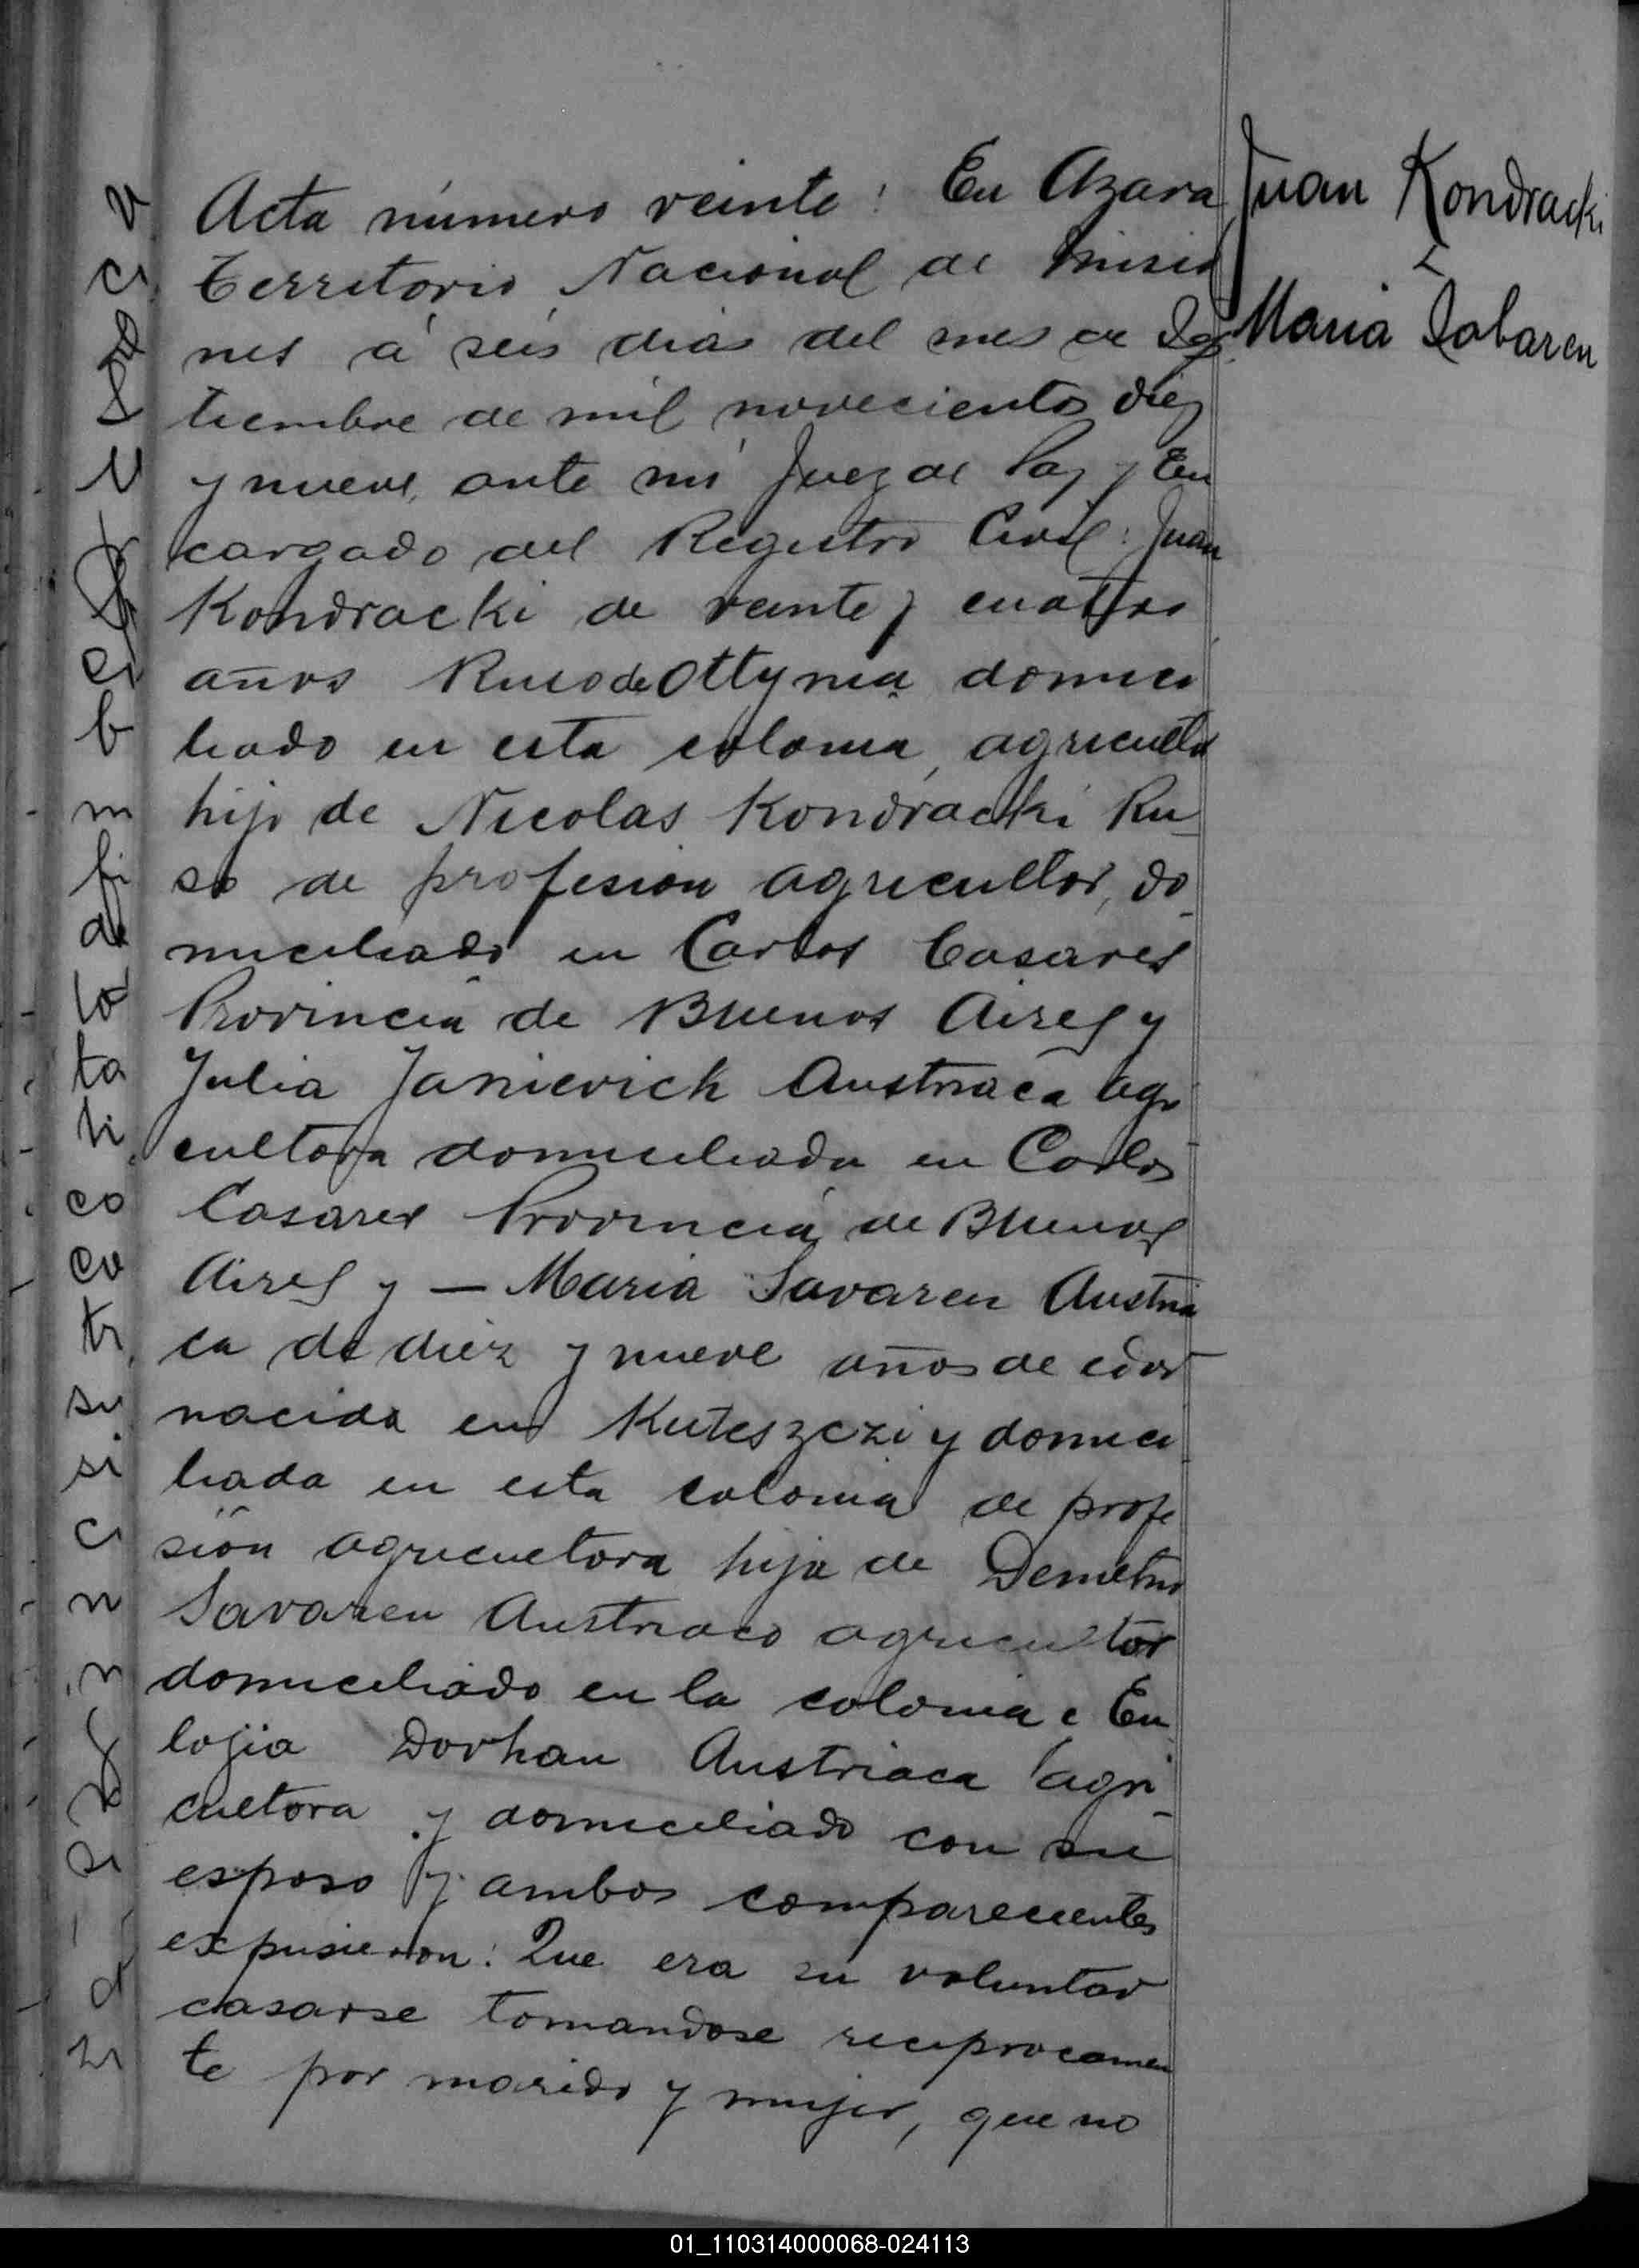 Acta número veinte: En Azara
Territorio Nacional de Misio
nes á seis dias del mes de Sep
tiembre de mil novecientos diez
y nueve, ante mi Juez de Paz y En
cargado del Registro Civil: Juan
Kondracki de veinte y cuatro
años Ruso de Ottynia domici
liado en esta colonia, agricultor
hijo de Nicolas Kondracki Ru
so de profesion agricultor, do
miciliado en Carlos Casares
Provincia de Buenos Aires y
Julia Janievich Austriaca agri
cultora domiciliada en Carlos
Casares Provincia de Buenos
Aires y — Maria Savaren Austria
ca de diez y nueve años de edad
nacida en Kuteszczi y domici
liada en esta colonia de profe
sión agricultora hija de Demetrio
Savaren Austriaco agricultor
domiciliado en la colonia e Eu
lojia Dovhan Austriaca agri
cultora y domiciliado con su
esposo y ambos comparecientes
expusieron: Que era su voluntad
casarse tomandose reciprocamen
te por marido y mujer, que no
Juan Kondracki
Maria Sabaren
01_110314000068-024113